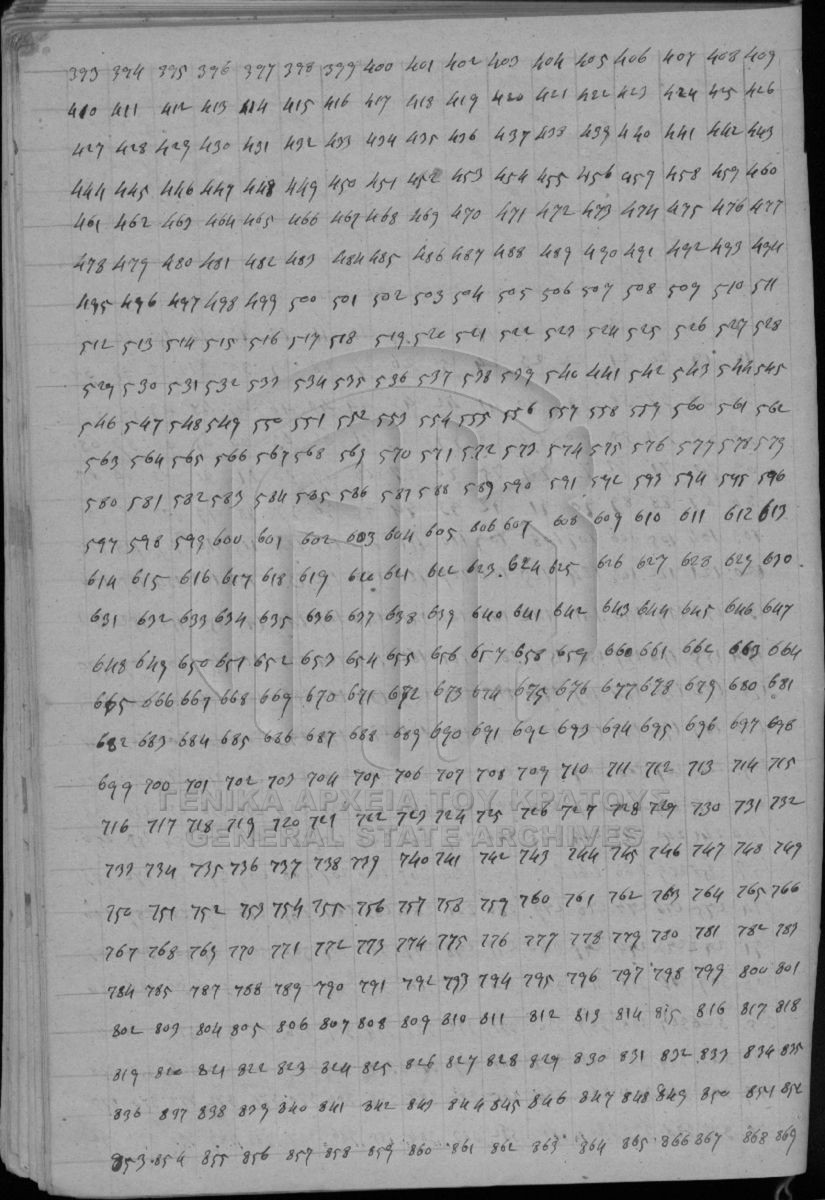 393 394 395 396 397 398 399 400 401 402 403 404 405 406 407 408 409
410 411 412 413 414 415 416 417 418 419 420 421 422 423 424 425 426
427 428 429 430 431 432 433 434 435 436 437 438 439 440 441 442 443
444 445 446 447 448 449 450 451 452 453 454 455 456 457 458 459 460
461 462 463 464 465 466 467 468 469 470 471 472 473 474 475 476 477
478 479 480 481 482 483 484 485 486 487 488 489 490 491 492 493 494
495 496 497 498 499 500 501 502 503 504 505 506 507 508 509 510 511
512 513 514 515 516 517 518 519 520 521 522 523 524 525 526 527 528
529 530 531 532 533 534 535 536 537 538 539 540 441 542 543 544 545
546 547 548 549 550 551 552 553 554 555 556 557 558 559 560 561 562
563 564 565 566 567 568 569 570 571 572 573 574 575 576 577 578 579
580 581 582 583 584 585 586 587 588 589 590 591 592 593 594 595 596
597 598 599 600 601 602 603 604 605 606 607 608 609 610 611 612 613
614 615 616 617 618 619 620 621 622 623 624 625 626 627 628 629 630
631 632 633 634 635 636 637 638 639 640 641 642 643 644 645 646 647
648 649 650 651 652 653 654 655 656 657 658 659 660 661 662 663 664
665 666 667 668 669 670 671 672 673 674 675 676 677 678 679 680 681
682 683 684 685 686 687 688 689 690 691 692 693 694 695 696 697 698
699 700 701 702 703 704 705 706 707 708 709 710 711 712 713 714 715
ΓΕΝΙΚΑ ΑΡΧΕΙΑ ΤΟΥ ΚΡΑΤΟΥΣ
716 717 718 719 720 721 722 723 724 725 726 727 728 729 730 731 732
GENERAL STATE ARCHIVES
733 734 735 736 737 738 739 740 741 742 743 744 745 746 747 748 749
750 751 752 753 754 755 756 757 758 759 760 761 762 763 764 765 766
767 768 769 770 771 772 773 774 775 776 777 778 779 780 781 782 783
784 785 787 788 789 790 791 792 793 794 795 796 797 798 799 800 801
802 803 804 805 806 807 808 809 810 811 812 813 814 815 816 817 818
819 820 821 822 823 824 825 826 827 828 829 830 831 832 833 834 835
836 837 838 839 840 841 842 843 844 845 846 847 848 849 850 851 852
853 854 855 856 857 858 859 860 861 862 863 864 865 866 867 868 869